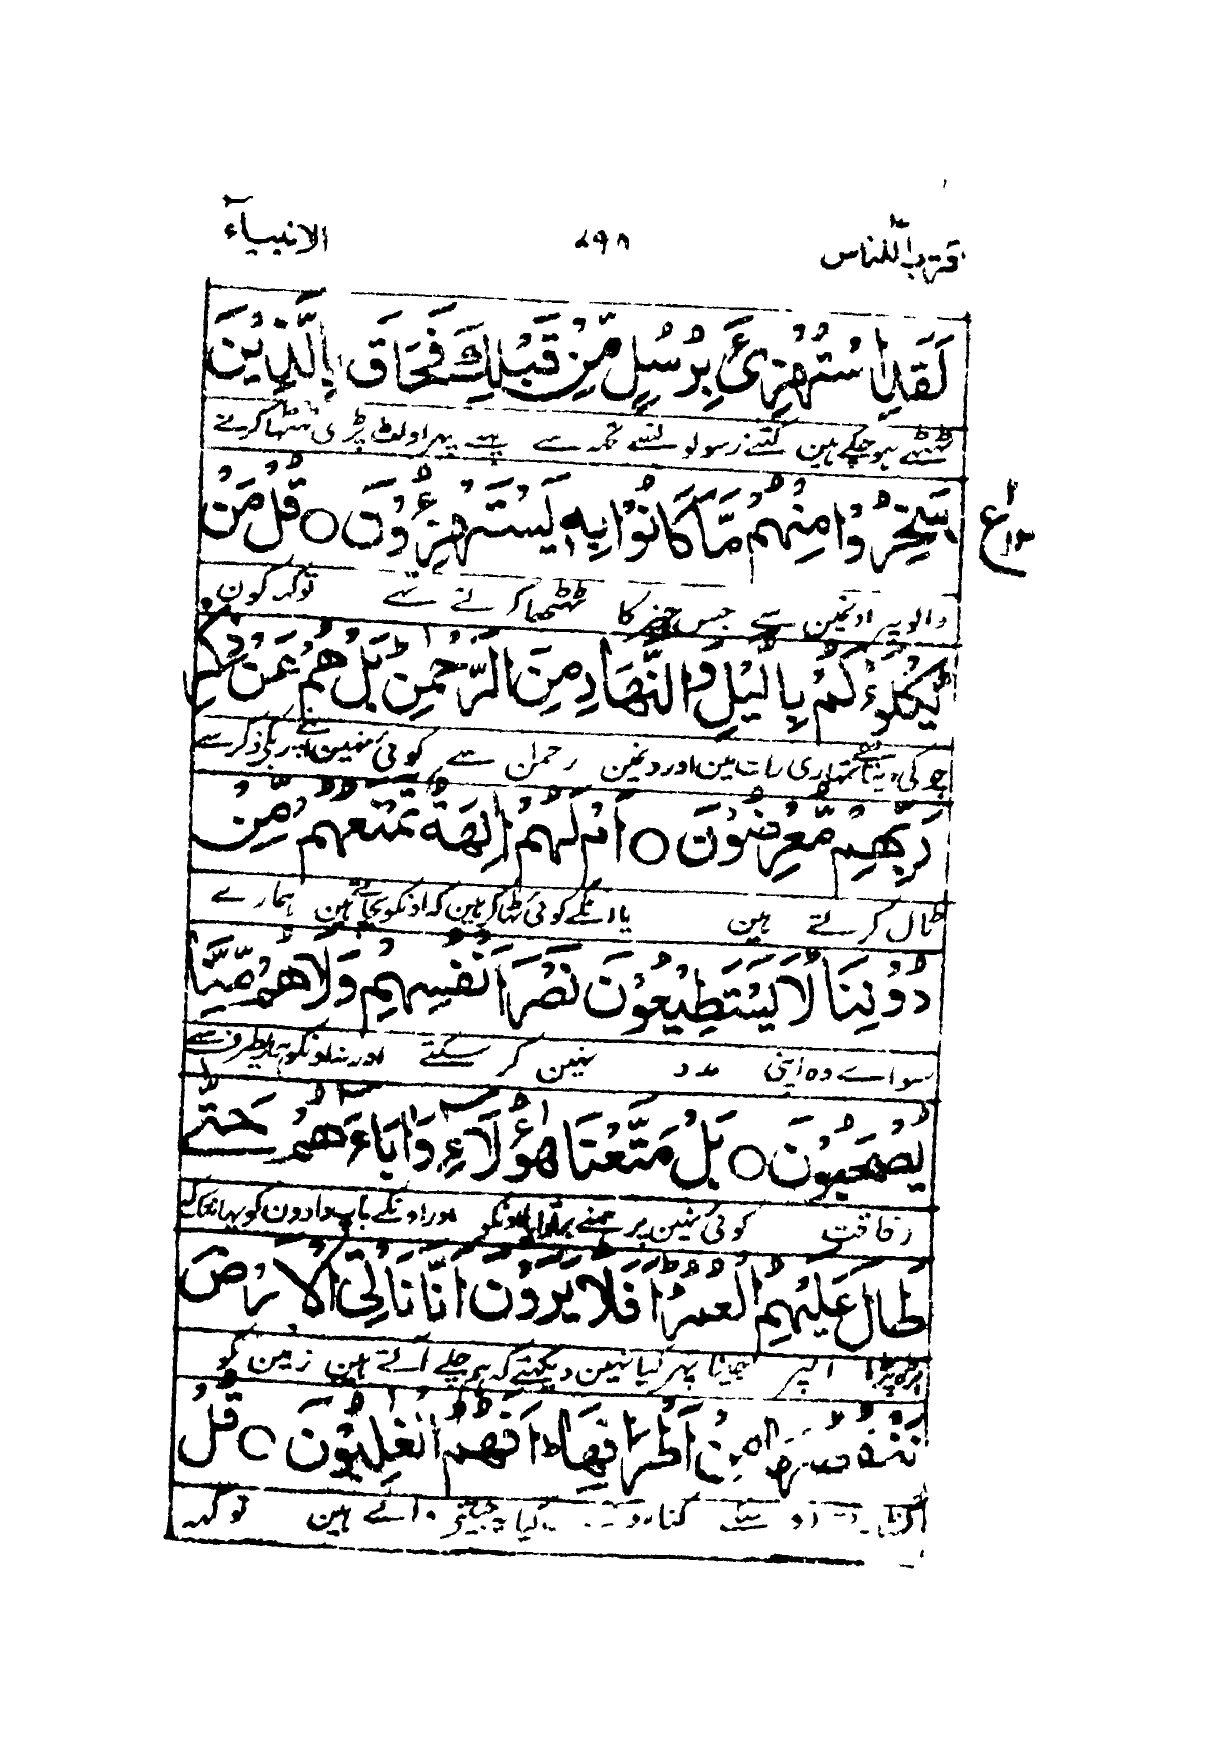 اقترب للناس ٤٩٨ الانبیآء
لَقَدِ اسْتُهْزِئَ بِرُسُلٍ مِّنْ قَبْلِكَ فَحَاقَ بِالَّذِيْنَ
ٹھٹھے ہوچکے ہین کتنے رسولونسے تجھسے پہلے پہر اولٹ پڑی ٹھٹھا کرنے
سَخِرُوْا مِنْهُمْ مَّا كَانُوْا بِهٖ يَسْتَهْزِءُوْنَ ○ قُلْ مَنْ
والونپر اونمین سے جس چیز کا ٹھٹھا کرتے تھے توکہہ کون
يَّكْلَؤُكُمْ بِالَّيْلِ وَالنَّهَارِ مِنَ الرَّحْمٰنِ بَلْ هُمْ عَنْ ذِكْرِ
چوکی دیتا ہے تمہاری رات مین اور دنمین رحمٰن سے کوئی نہین
رَبِّهِمْ مُّعْرِضُوْنَ ○ اَمْ لَهُمْ اٰلِهَةٌ تَمْنَعُهُمْ مِّنْ
ٹال کرتے ہین یا انکے کوئی ٹھاکر ہین کہ اونکو بچاتے ہین ہمارے
دُوْنِنَا لَا يَسْتَطِيْعُوْنَ نَصْرَ اَنْفُسِهِمْ وَلَا هُمْ مِّنَّا
سواے وہ اپنی مدد نہین کر سکتے اور نہ اونکو ہماری طرف سے
يُصْحَبُوْنَ ○ بَلْ مَتَّعْنَا هٰۤؤُلَآءِ وَاٰبَآءَهُمْ حَتّٰى
رفاقت کوئی نہین پر ہمنے اونکو اور اونکے باپ دادون کو یہانتک
طَالَ عَلَيْهِمُ الْعُمُرُ اَفَلَا يَرَوْنَ اَنَّا نَاْتِى الْاَرْضَ
اونپر جینا پہر کیا نہین دیکھتے کہ ہم چلے آتے ہین زمین کو
نَنْقُصُهَا مِنْ اَطْرَافِهَا اَفَهُمُ الْغٰلِبُوْنَ ○ قُلْ
کنارونسے کیا جیتنے والے ہین توکہہ